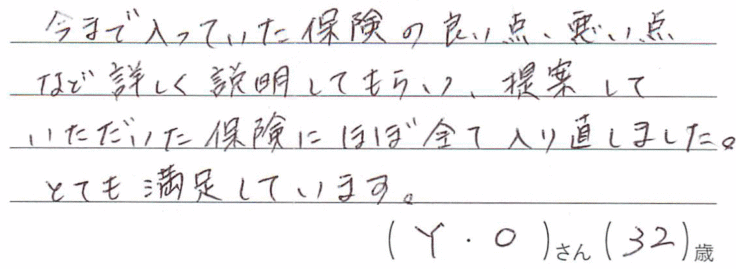 今まで入っていた保険の良い点、悪い点
など詳しく説明してもらい、提案して
いただいた保険にほぼ全て入り直しました。
とても満足しています。
(Y.O)さん(32)歳